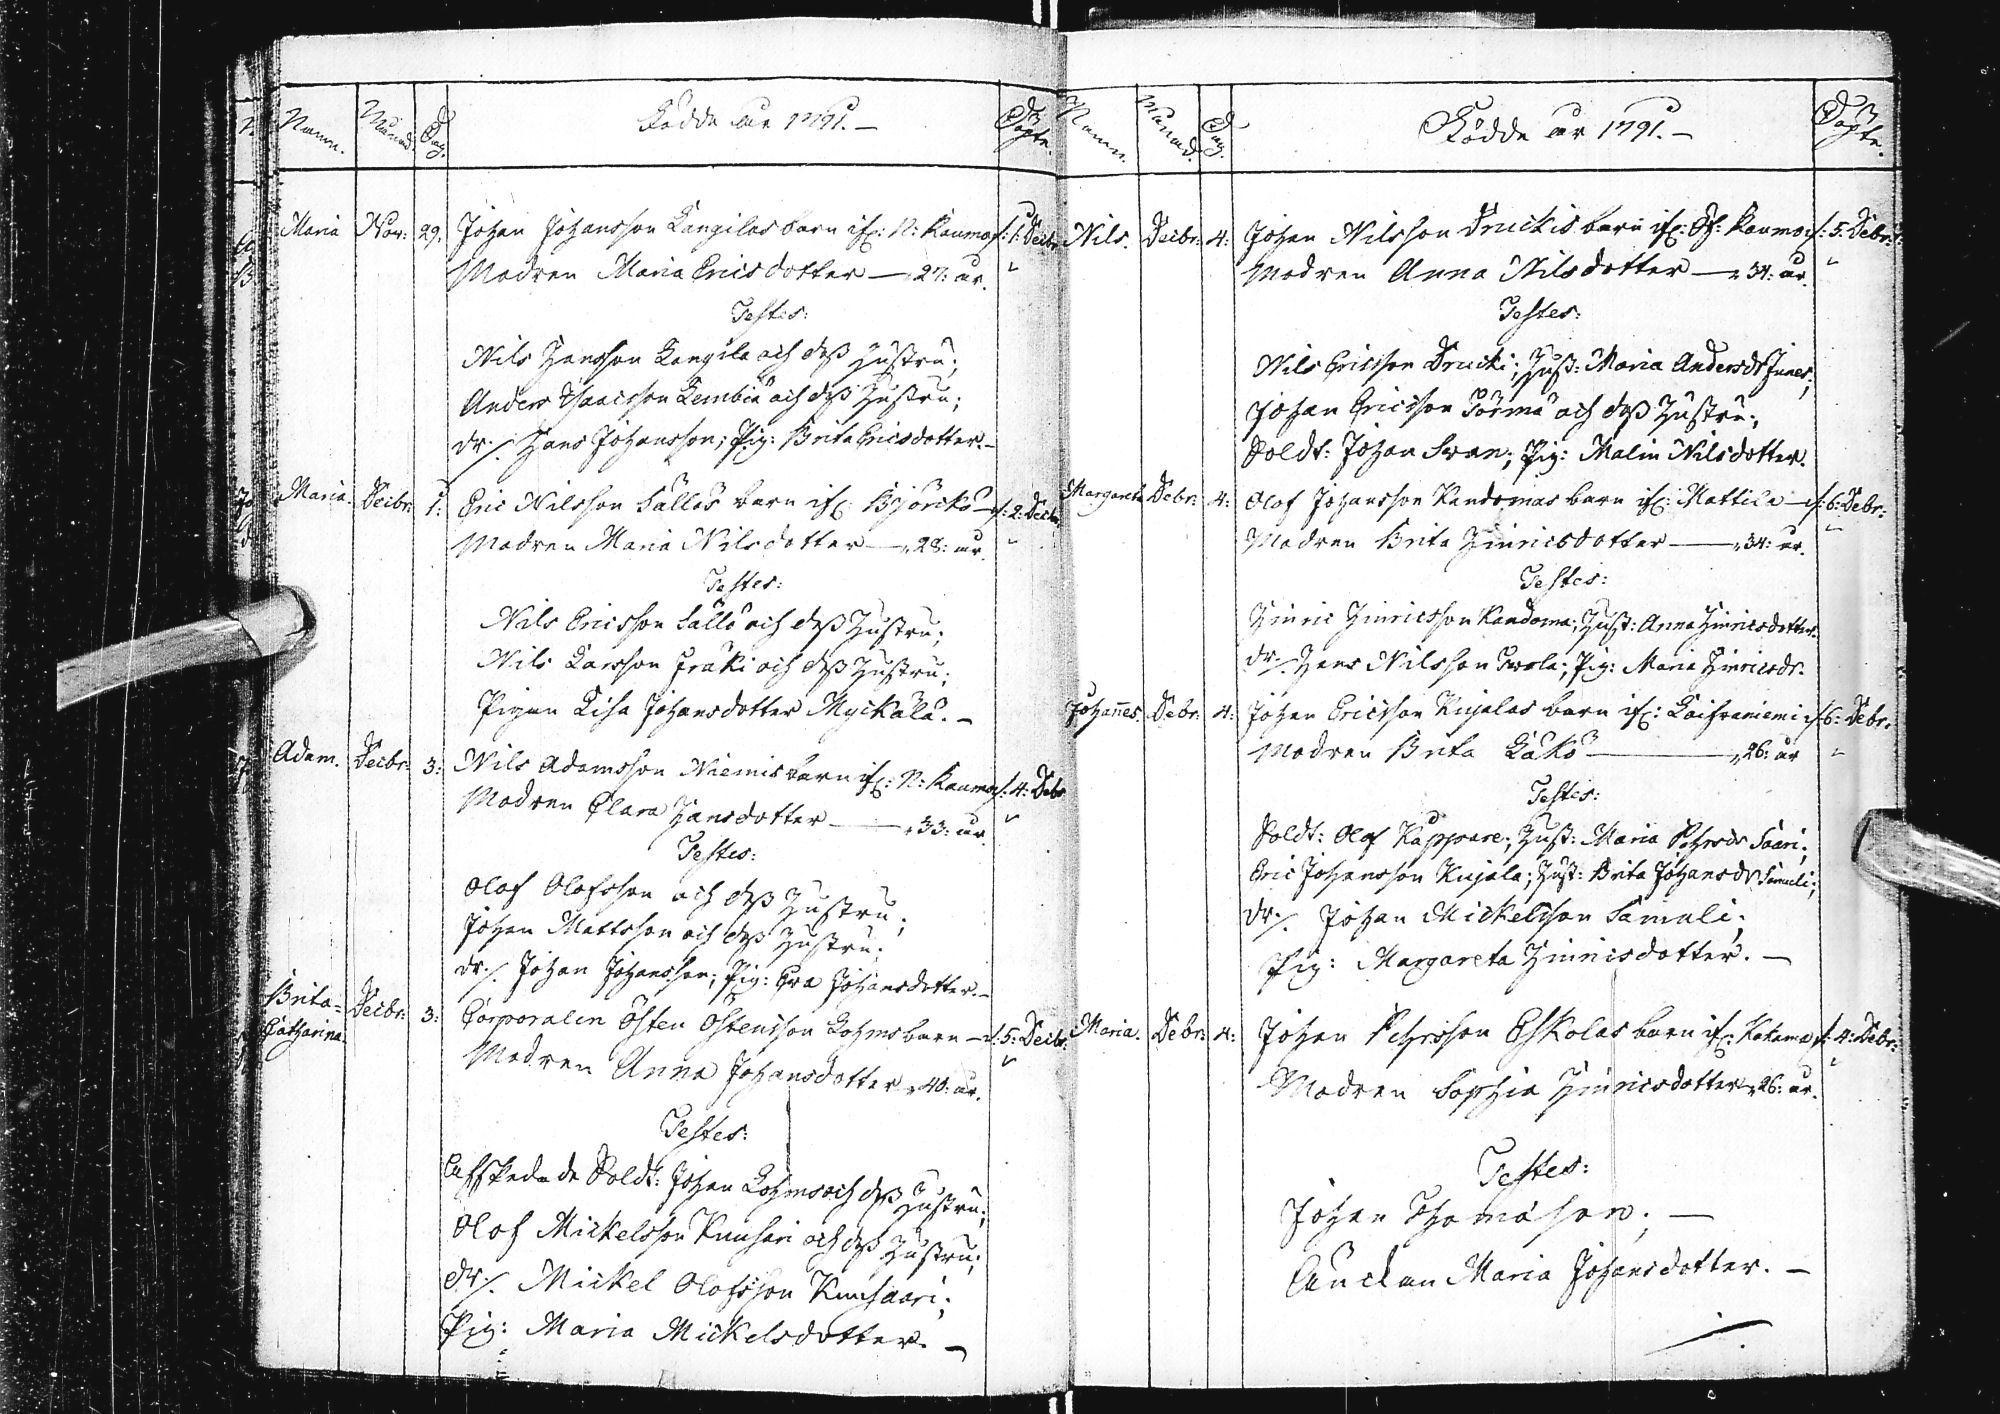 Namn. Månad. Dag. Födde år 1791. — Döpte.
Maria Nov: 29. Johan Johansson Kangilas barn if: N: Kaumo f: 1: Decbr
Modren Maria Ericsdotter — 27: år.
Testes:
Nils Hansson Kangila och dess Hustru;
Anders Isaacsson Lembiä och dess Hustru;
dr./. Hans Johansson; Pig: Brita Ericsdotter. —
Maria. Decbr: 1: Eric Nilsson Källos barn if: Björckö f: 2: Decbr
Modren Maria Nilsdotter — 28: år.
Testes:
Nils Ericsson och dess Hustru;
Nils Larsson Fräki och dess Hustru;
Pigan Lisa Johansdotter Myckälä. —
Adam. Decbr: 3: Nils Adamsson Niemis barn if: N: Kaumo f: 4: Debr
Modren Clara Hansdotter — 33: år.
Testes:
Olof Olofsson och dess Hustru;
Johan Mattsson och dess Hustru;
dr./. Johan Johansson; Pig: Eva Johansdotter. —
Brita= Decbr: 3: Corporalen Östen Östensson Lohms barn — f: 5: Decbr.
Catharina. Modren Anna Johansdotter 40: år.
Testes:
Affskedade Soldt: Johan Lohms och dess Hustru;
Olof Mickelsson Kuusari och dess Hustru;
dr./. Mickel Olofsson Kuusaari;
Pig: Maria Mickelsdotter. —
Namn. Månad. Dag. Födde år 1791. — Döpte.
Nils. Decbr: 4: Johan Nilsson Druckis barn if: Öf: Kaumo f: 5: Debr:
Modren Anna Nilsdotter — 34: år.
Testes:
Nils Ericsson Drucki; Hust: Maria Andersdr Junes;
Johan Ericsson Törmä och dess Hustru;
Soldt: Johan Swan; Pig: Malin Nilsdotter.
Margareta Debr: 4: Olof Johansson Kandomas barn if: Mattila — f: 6: Debr:
Modren Brita Hinricsdotter — 34: år.
Testes:
Hinric Hinricsson Kandoma; Hust: Anna Hinricsdotter.
dr./. Hans Nilsson; Pig: Maria Hinricsdr.
Johannes. Debr: 4: Johan Ericsson Kujalas barn if: Haapaniemi f: 6: Debr:
Modren Brita Läkö — 26: år
Testes:
Soldt: Olof Kappare; Hust: Maria Pehrsdr Saari;
Eric Johansson Kujala; Hust: Brita Johansdr Samuli;
dr./. Johan Mickelsson Samuli;
Pig: Margareta Hinricsdotter. —
Maria. Debr: 4: Johan Pehrsson Eskolas barn if: Kakama f: 4: Debr:
Modren Sophia Hinricsdotter 26: år.
Testes:
Johan Thomasson; —
Änckan Maria Johansdotter. —